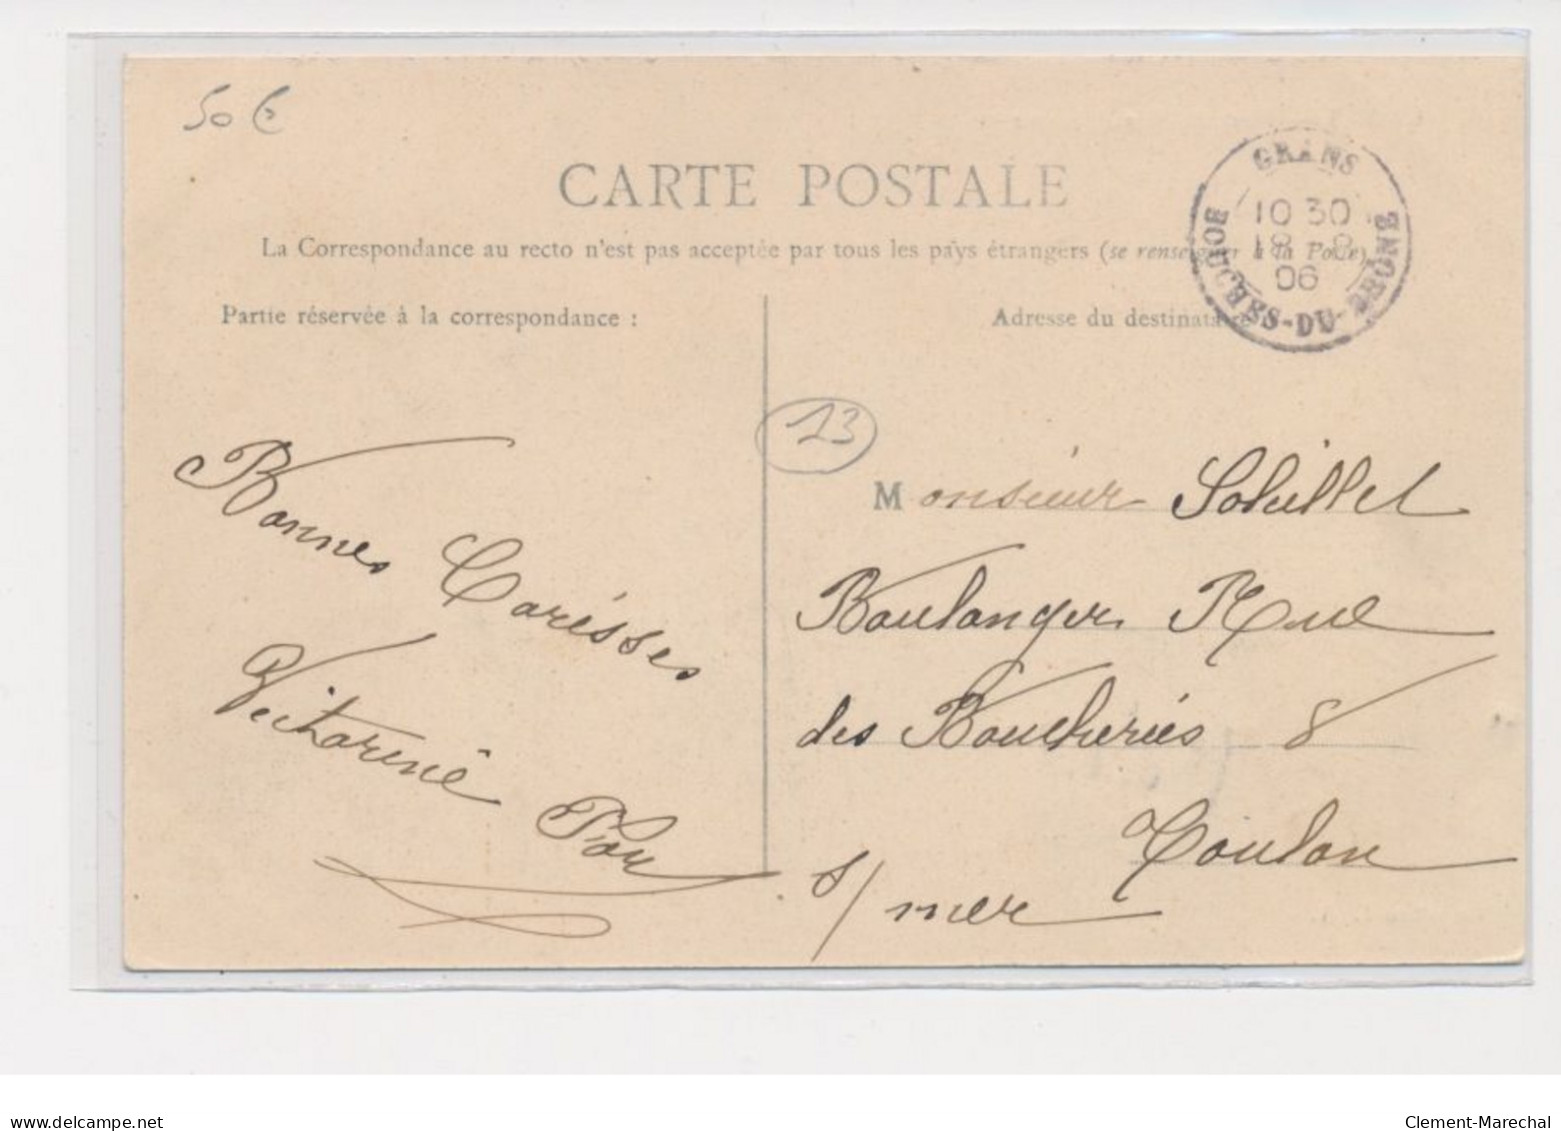 50 €
CARTE POSTALE
La Correspondance au recto n'est pas acceptée par tous les pays étrangers (se renseigner à la Poste)
GRANS
10 30
18 8
06
BOUCHES-DU-RHONE
Partie réservée à la correspondance :
Adresse du destinataire
13
Bonnes Carésses
Monsieur
Boulanger Rue
des Boucheriés 8
Toulon
s/mer
www.delcampe.net
Clement-Marechal